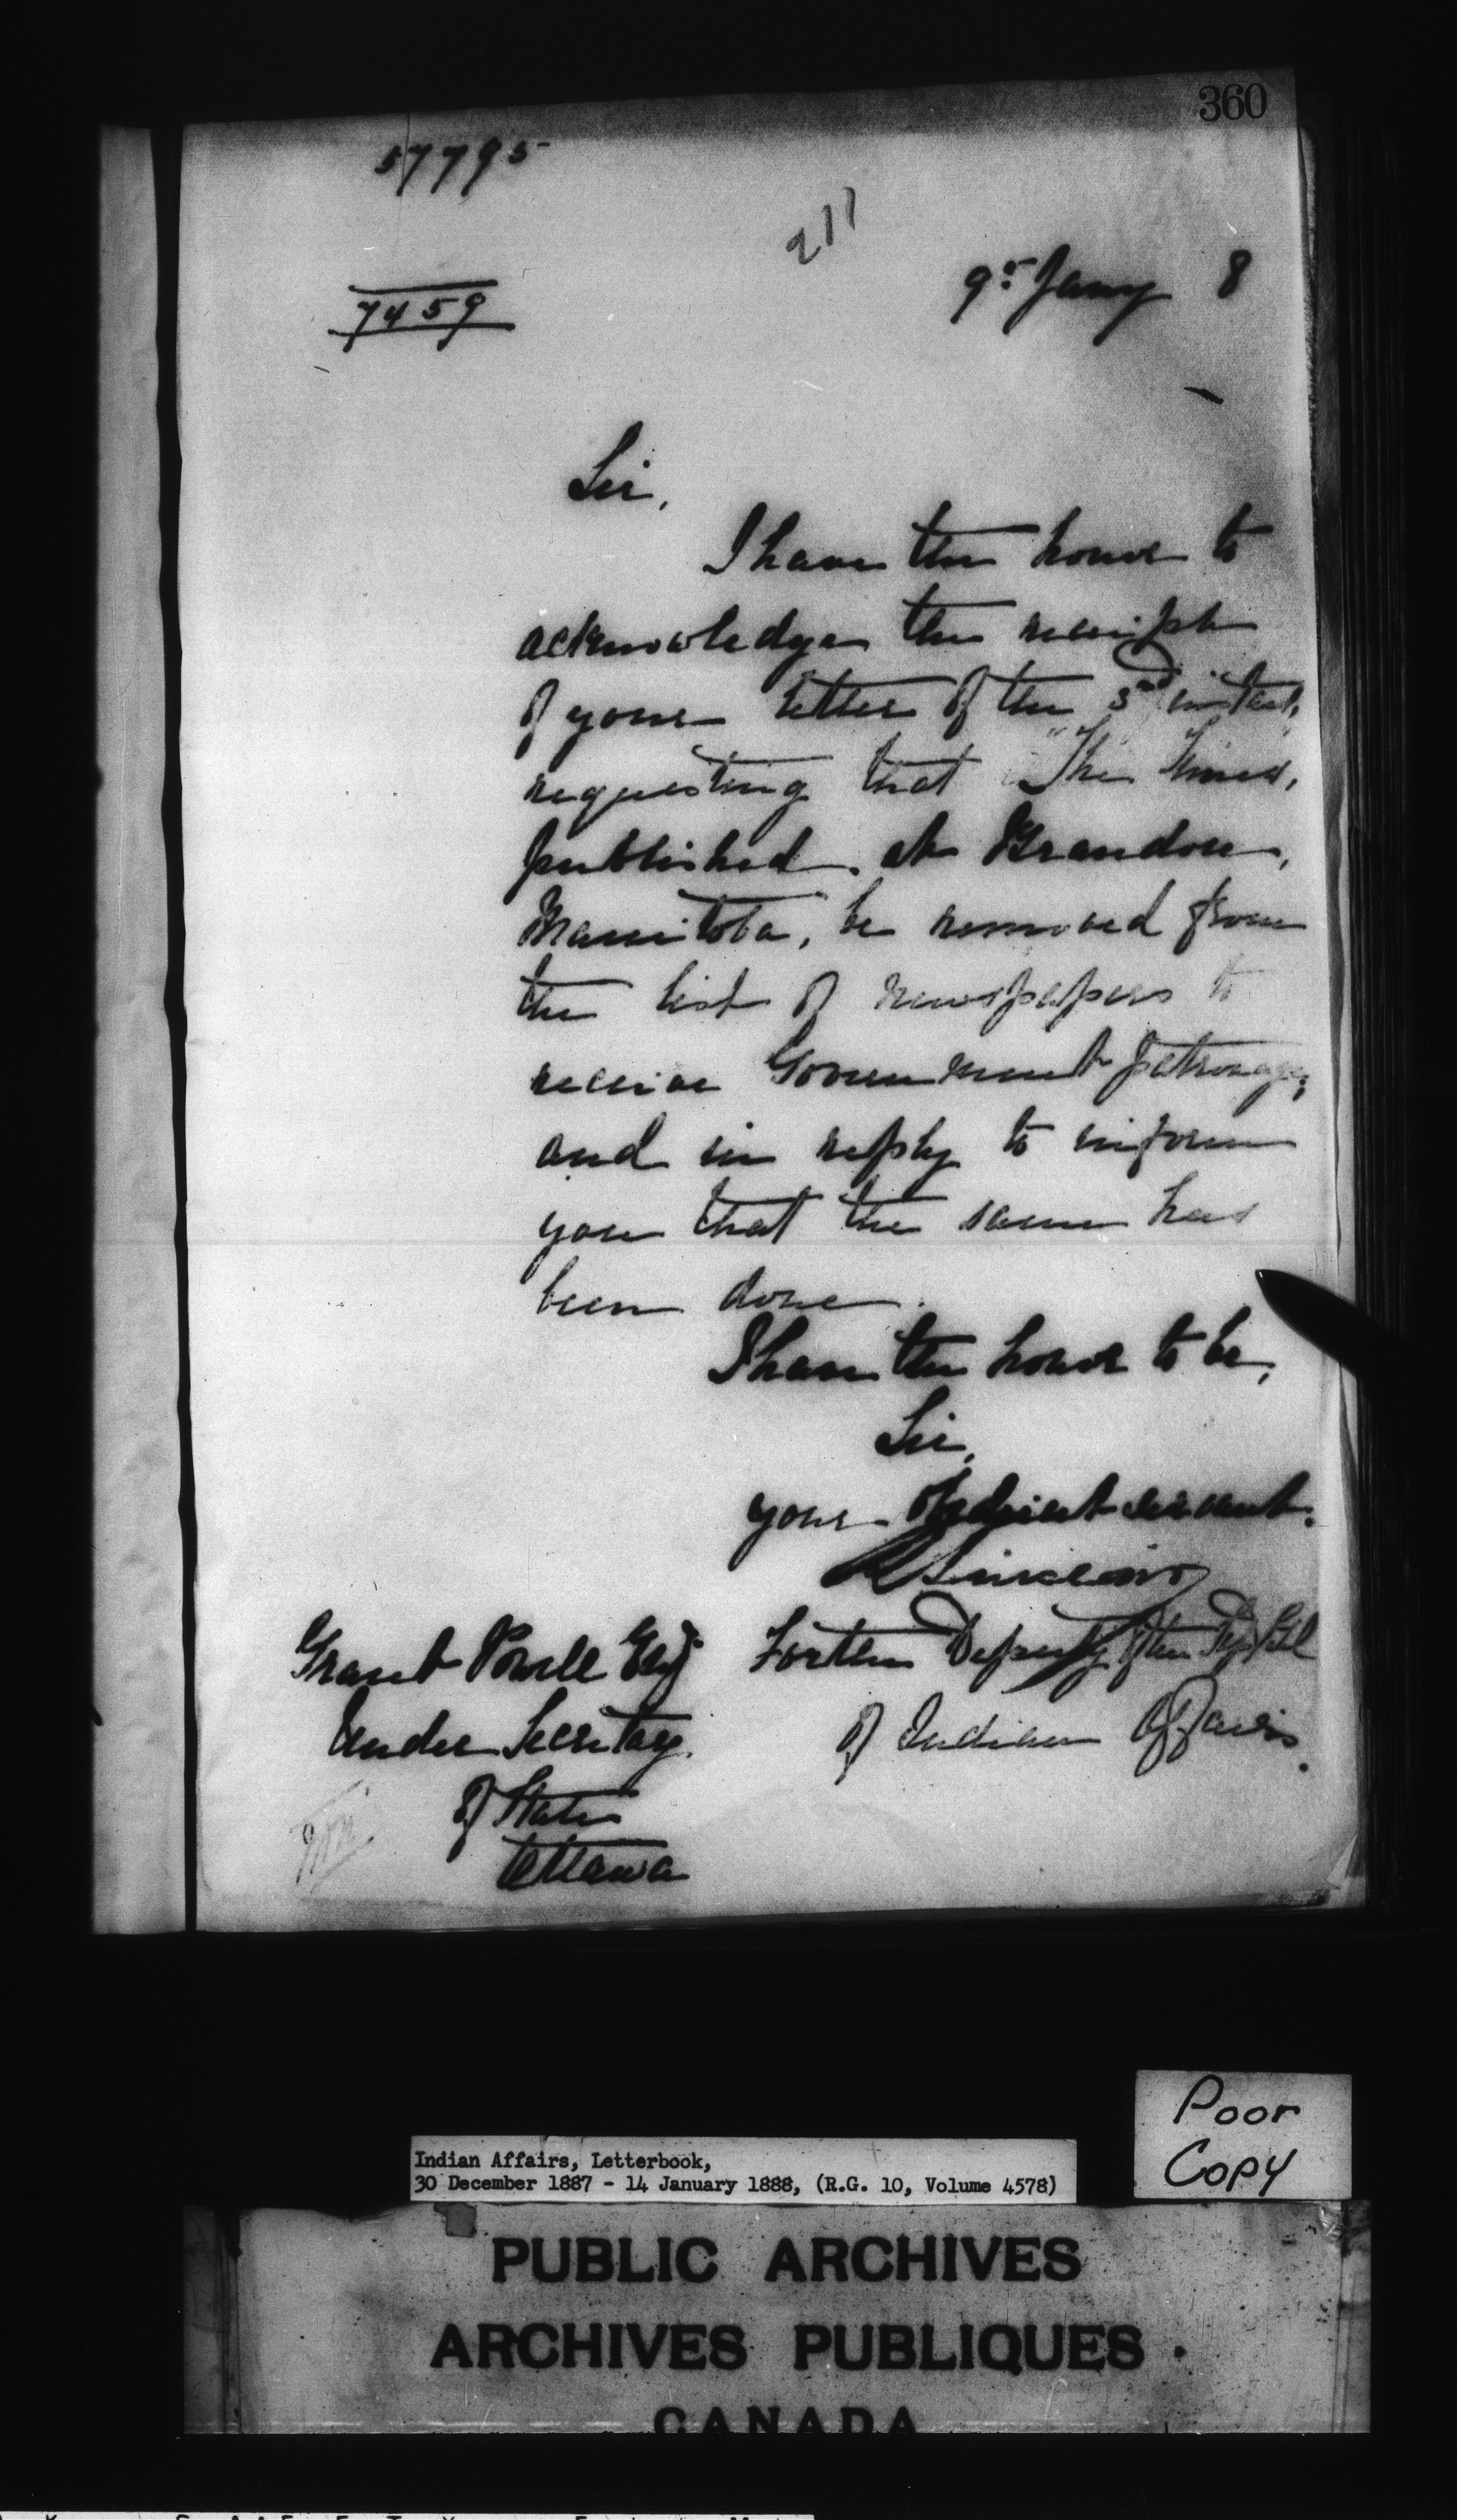 360
57795
211
7459
9th Jany 8
Sir,
I have the honor to
acknowledge the receipt
of your letter of the 3rd instant,
requesting that "The Times",
published at Brandon,
Manitoba, be removed from
the list of newspapers to
receive Government patronage,
and in reply to inform
you that the same has
been done.
I have the honor to be,
Sir,
your obedient servant.
R Sinclair
For the Deputy of the Sup. Gl
of Indian Affairs.
Grant Powell Esq
Under Secretary
of State
Ottawa
Poor
Copy
Indian Affairs, Letterbook,
30 December 1887 - 14 January 1888, (R.G. 10, Volume 4578)
PUBLIC ARCHIVES
ARCHIVES PUBLIQUES
CANADA